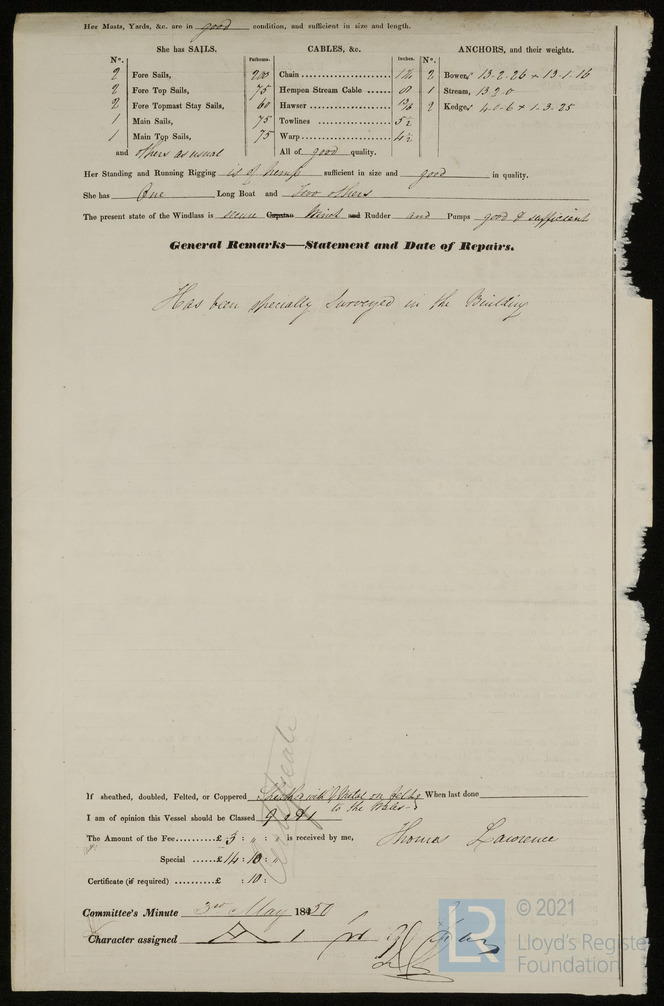 Her Masts, Yards, &c. are in good condition, and sufficient in size and length.
She has SAILS. CABLES, &c. ANCHORS, and their weights.
N°. Fathoms. Inches. N°.
2 Fore Sails, 200 Chain 2 Bowers 13.2.26 + 13.1.16
2 Fore Top Sails, 75 Hempen Stream Cable 8 1 Stream, 13.2.0
2 Fore Topmast Stay Sails, 60 Hawser 2 Kedges 4.0.6 + 1.3.25
1 Main Sails, 75 Towlines 5½
1 Main Top Sails, 75 Warp 4½
and others as usual All of good quality.
Her Standing and Running Rigging is of hemp sufficient in size and good in quality.
She has One Long Boat and Two others
The present state of the Windlass is Capstan Winch and Rudder and Pumps good & sufficient
General Remarks—Statement and Date of Repairs.
Has been specially Surveyed in the Building
If sheathed, doubled, Felted, or Coppered Sheathed with Y Metal on When last done
to the Wales
I am of opinion this Vessel should be Classed 9 A 1
The Amount of the Fee £ 5 : " : " is received by me, Thomas Lawrence
Special £ 14 : 10 : "
Certificate (if required) £ : 10 :
Committee's Minute 3rd May 1850
Character assigned A 1
© 2021
LR Lloyd's Register
Foundation